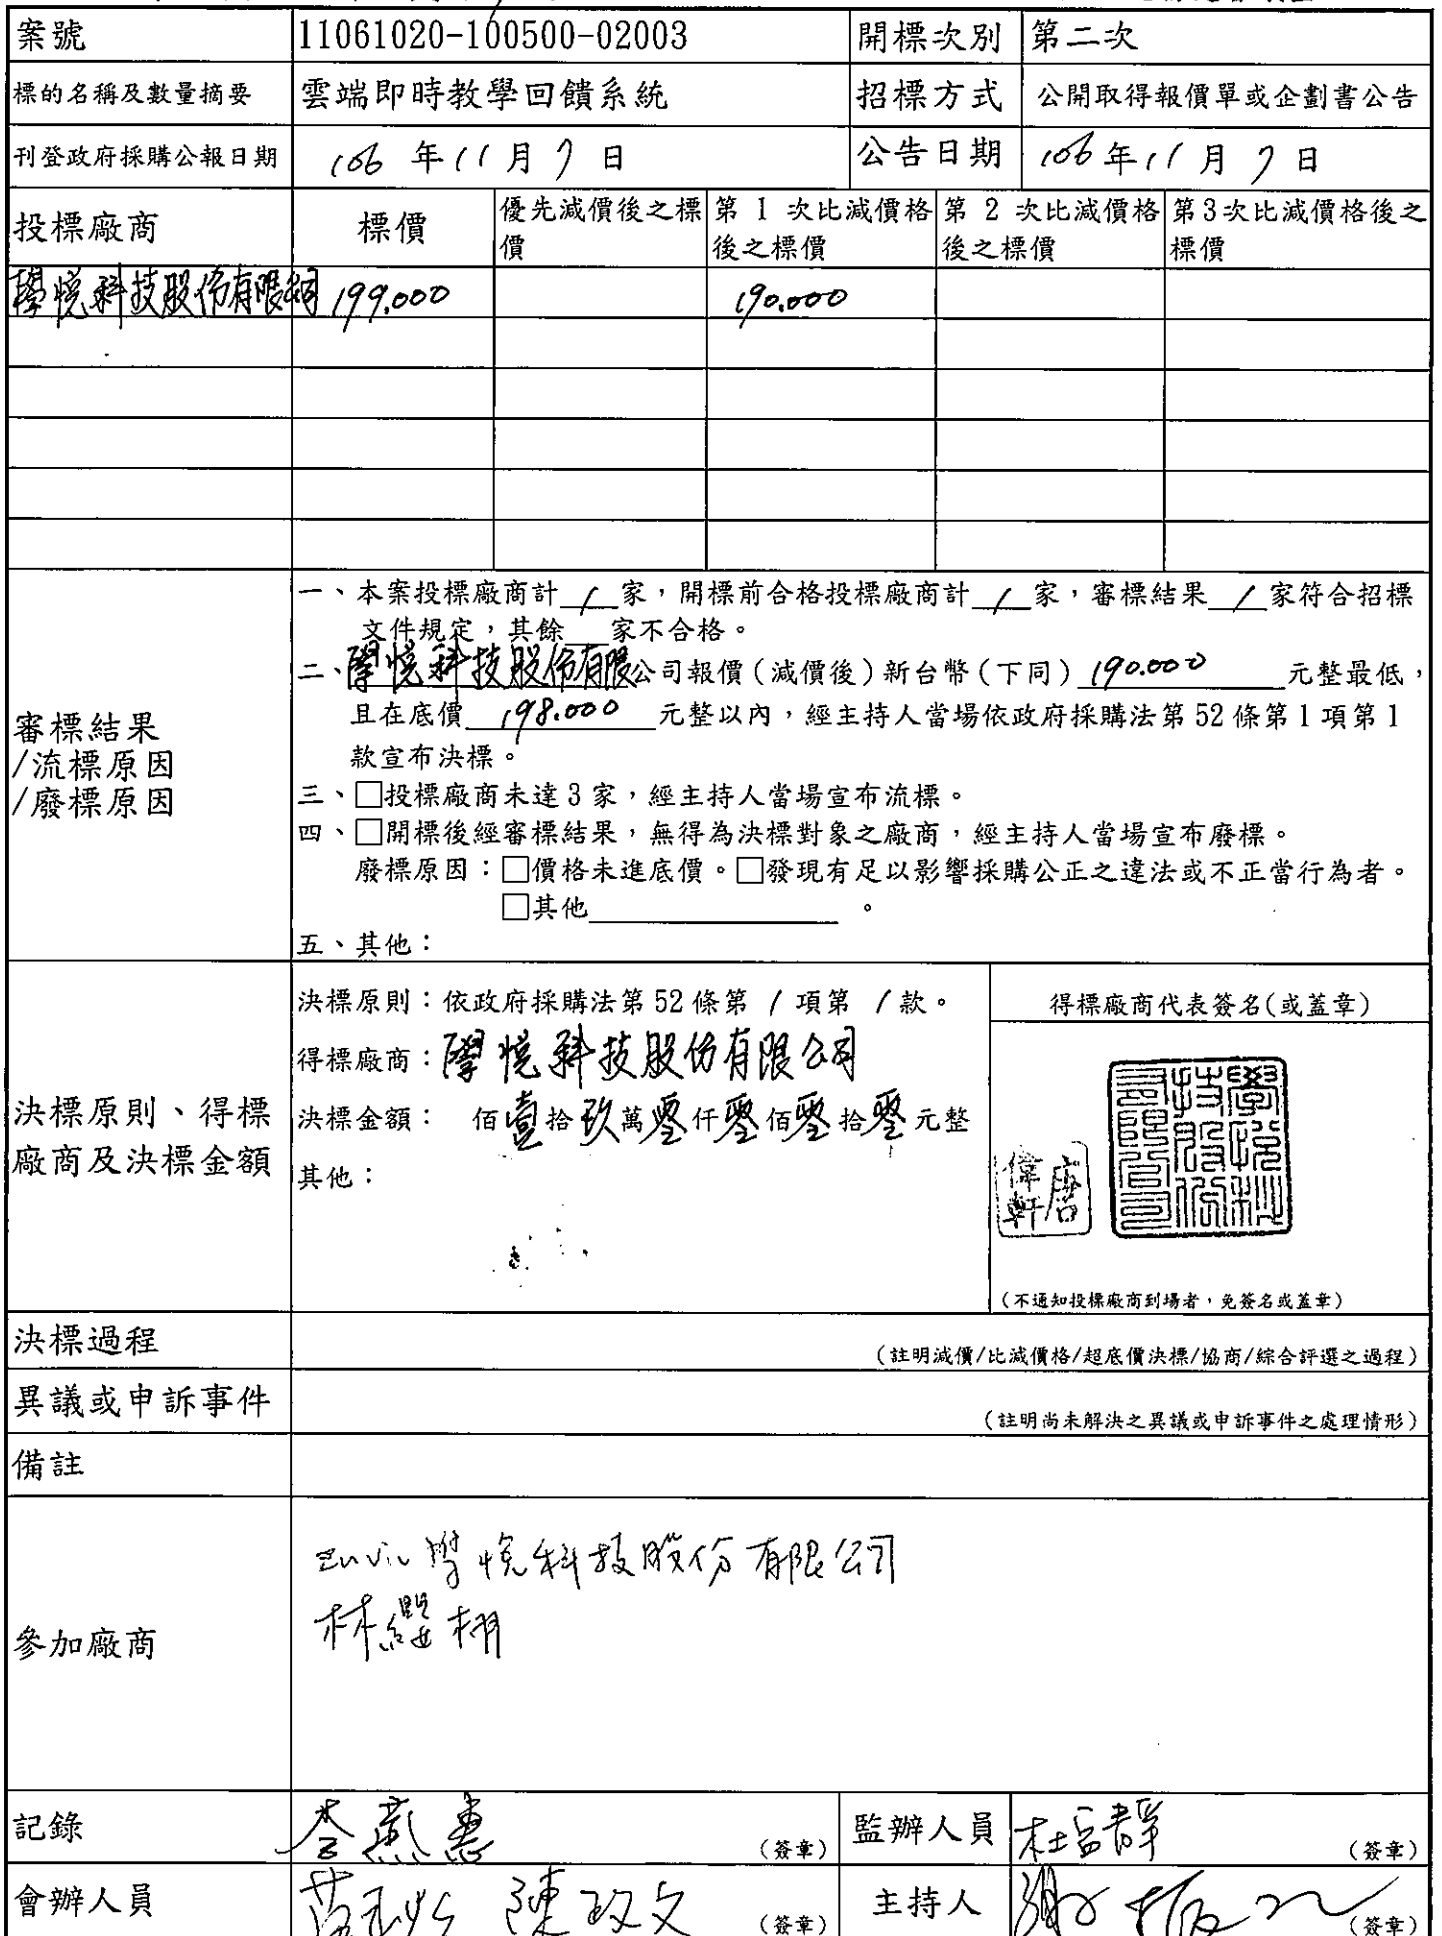 案號 11061020-100500-02003 開標次別 第二次
標的名稱及數量摘要 雲端即時教學回饋系統 招標方式 公開取得報價單或企劃書公告
刊登政府採購公報日期 106 年 11 月 7 日 公告日期 106 年 11 月 7 日
投標廠商 標價 優先減價後之標價 第 1 次比減價格後之標價 第 2 次比減價格後之標價 第3次比減價格後之標價
學悅科技股份有限公司 199.000 190.000
審標結果
/流標原因
/廢標原因
一、本案投標廠商計 1 家,開標前合格投標廠商計 1 家,審標結果 1 家符合招標
文件規定,其餘 家不合格。
二、學悅科技股份有限公司報價(減價後)新台幣(下同) 190.000 元整最低,
且在底價 198.000 元整以內,經主持人當場依政府採購法第 52 條第 1 項第 1
款宣布決標。
三、□投標廠商未達 3 家,經主持人當場宣布流標。
四、□開標後經審標結果,無得為決標對象之廠商,經主持人當場宣布廢標。
廢標原因:□價格未進底價。□發現有足以影響採購公正之違法或不正當行為者。
□其他 。
五、其他:
決標原則、得標
廠商及決標金額
決標原則:依政府採購法第 52 條第 1 項第 1 款。
得標廠商:學悅科技股份有限公司
決標金額: 佰壹拾玖萬零仟零佰零拾零元整
其他:
得標廠商代表簽名(或蓋章)
唐偉軒
學悅科技股份有限公司
(不通知投標廠商到場者,免簽名或蓋章)
決標過程 (註明減價/比減價格/超底價決標/協商/綜合評選之過程)
異議或申訴事件 (註明尚未解決之異議或申訴事件之處理情形)
備註
參加廠商
Zuvio 學悅科技股份有限公司
林纓栩
記錄 李燕惠 (簽章) 監辦人員 (簽章)
會辦人員 陳政文 (簽章) 主持人 (簽章)